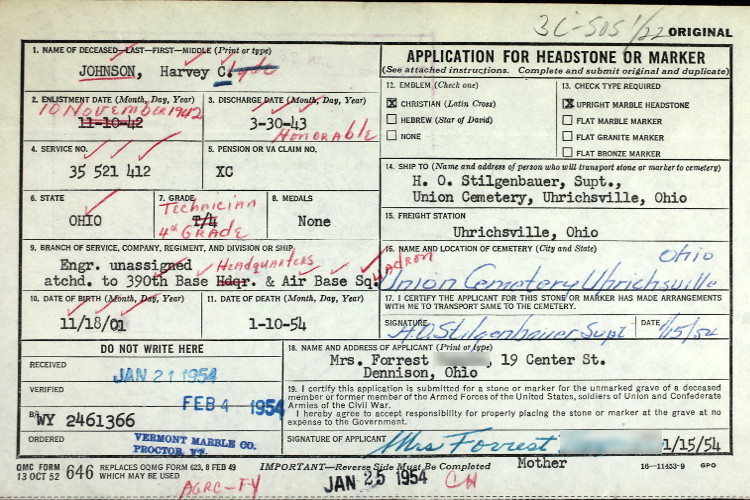 3C-505 1/22 ORIGINAL
1. NAME OF DECEASED—LAST—FIRST—MIDDLE (Print or type)
JOHNSON, Harvey C. Clyde
2. ENLISTMENT DATE (Month, Day, Year)
10 NOVEMBER 1942
11-10-42
3. DISCHARGE DATE (Month, Day, Year)
3-30-43
HONORABLE
4. SERVICE NO.
35 521 412
5. PENSION OR VA CLAIM NO.
XC
6. STATE
OHIO
7. GRADE
Technician
T/4
4th GRADE
8. MEDALS
None
9. BRANCH OF SERVICE, COMPANY, REGIMENT, AND DIVISION OR SHIP
Engr. unassigned Headquarters
atchd. to 390th Base Hdqr. & Air Base Sq. uadron
10. DATE OF BIRTH (Month, Day, Year)
11/18/01
11. DATE OF DEATH (Month, Day, Year)
1-10-54
APPLICATION FOR HEADSTONE OR MARKER
(See attached instructions. Complete and submit original and duplicate)
12. EMBLEM (Check one)
X CHRISTIAN (Latin Cross)
HEBREW (Star of David)
NONE
13. CHECK TYPE REQUIRED
X UPRIGHT MARBLE HEADSTONE
FLAT MARBLE MARKER
FLAT GRANITE MARKER
FLAT BRONZE MARKER
14. SHIP TO (Name and address of person who will transport stone or marker to cemetery)
H. O. Stilgenbauer, Supt.,
Union Cemetery, Uhrichsville, Ohio
15. FREIGHT STATION
Uhrichsville, Ohio
16. NAME AND LOCATION OF CEMETERY (City and State)
Ohio
Union Cemetery Uhrichsville
17. I CERTIFY THE APPLICANT FOR THIS STONE OR MARKER HAS MADE ARRANGEMENTS
WITH ME TO TRANSPORT SAME TO THE CEMETERY.
SIGNATURE H.O. Stilgenbauer, Supt DATE 1/15/54
DO NOT WRITE HERE
RECEIVED
JAN 21 1954
VERIFIED
FEB 4 1954
B/L WY 2461366
ORDERED
VERMONT MARBLE CO.
PROCTOR, VT.
18. NAME AND ADDRESS OF APPLICANT (Print or type)
Mrs. Forrest , 19 Center St.
Dennison, Ohio
19. I certify this application is submitted for a stone or marker for the unmarked grave of a deceased
member or former member of the Armed Forces of the United States, soldiers of Union and Confederate
Armies of the Civil War.
I hereby agree to accept responsibility for properly placing the stone or marker at the grave at no
expense to the Government.
SIGNATURE OF APPLICANT Mrs Forrest 1/15/54
Mother
QMC FORM
13 OCT 52 646 REPLACES OQMG FORM 623, 8 FEB 49
WHICH MAY BE USED
IMPORTANT—Reverse Side Must Be Completed
16—11453-9 GPO
AGRC-FY
JAN 25 1954
CH